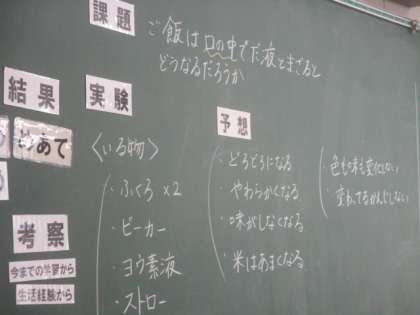 課題
ご飯は口の中でだ液とまざると
どうなるだろうか
結果
実験
予想
めあて
<いる物>
・ふくろ×2
・ビーカー
・ヨウ素液
・ストロー
・どろどろになる
・やわらかくなる
・味がしなくなる
・米はあまくなる
・色も味も変化しない
・変わってるかんじしない
考察
今までの学習から
生活経験から